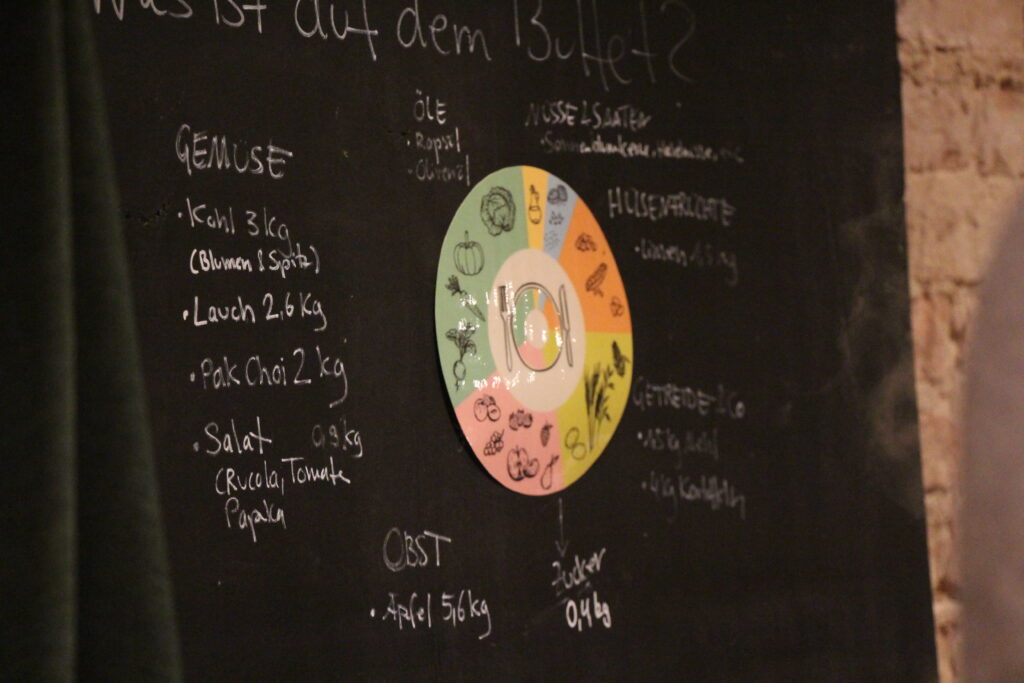 Was ist auf dem Buffet?
GEMÜSE
• Kohl 3 kg
(Blumen & Spitz)
• Lauch 2,6 kg
• Pak Choi 2 kg
• Salat 0,9 kg
(Rucola, Tomate
Paprika
ÖLE
• Rapsöl
• Olivenöl
NÜSSE & SAATEN
• Sonnenblumenkerne, Haselnüsse, etc
HÜLSENFRÜCHTE
• Linsen 1,5 kg
GETREIDE & Co
• 4 kg Kartoffeln
OBST
• Äpfel 5,6 kg
Zucker
0,4 kg